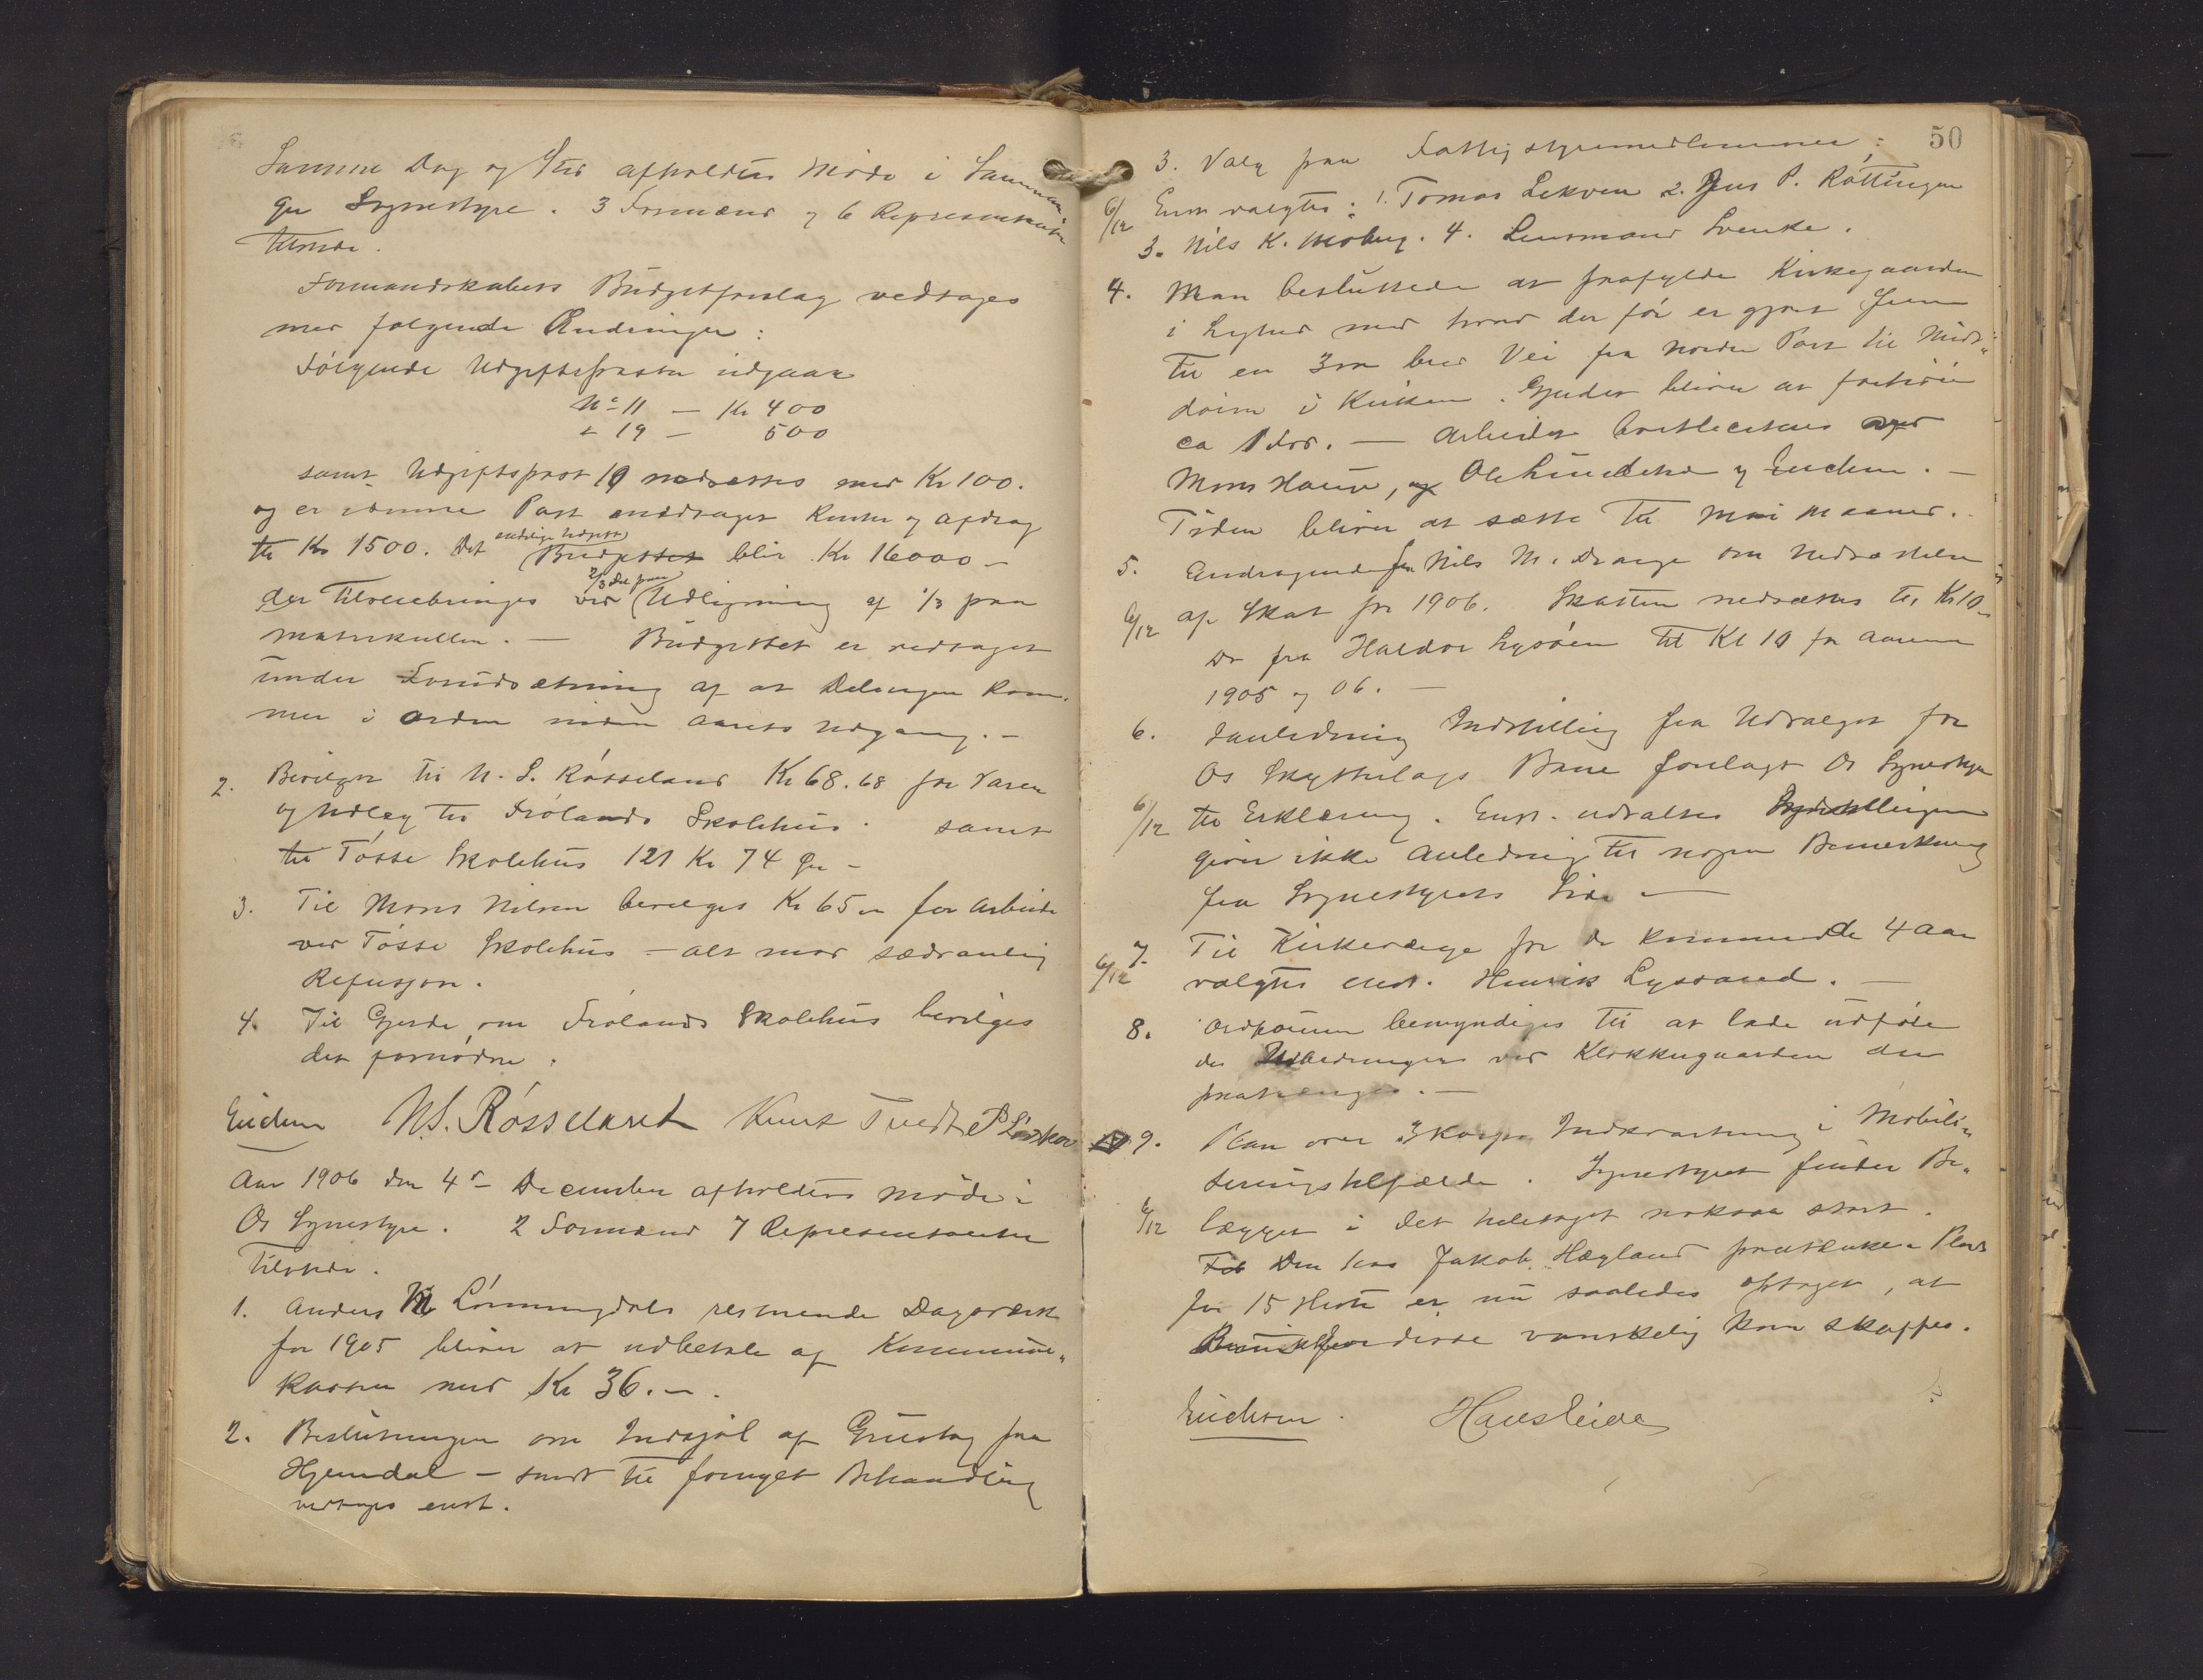 Samme Dag og Sted afholdtes Møde i Samnan-
ger Sognestyre. 3 Formænd og 6 Repræsentanter
tilstede.
Formandskabets Budgetforslag vedtages
med følgende Ændringer:
Følgende Udgiftsposter udgaar
No 11 — Kr 400
" 19 — 500
samt Udgiftspost 19 nedsættes med Kr 100.
og er i denne Post anddraget Renter og Afdrag
til Kr 1500. Det endelige Udgifts Budgettet blir Kr 16000 —
der tilveiebringes ved 2/3 Del paa Udligning og 1/3 paa
Matrikullen. — Budgettet er vedtaget
under Forudsætning af at Delingen kom-
mer i Orden inden Aarets Udgang. —
2. Bevilges til N. S. Røsseland Kr 68.68 for Varer
og Udlæg til Frølands Skolehus. samt
til Tøsse Skolehus 121 Kr 74 Øre —
3. Til Mons Nilsen bevilges Kr 65 — for Arbeide
ved Tøsse Skolehus — alt mod sædvanlig
Refusjon.
4. Til Gjerde om Frølands Skolehus bevilges
det fornødne.
Eidem N.S. Røsseland Knut Tvedt
Aar 1906 den 4de December afholdtes Møde i
Os Sognestyre. 2 Formænd 7 Repræsentanter
tilstede.
1. Anders Lønningdals resterende Dagsværk
for 1905 bliver at udbetale af Kommune-
kassen med Kr 36. —.
2. Beslutningen om Indkjøb af Grustag fra
Hjemdal — sendt til fornyet Behandling
vedtages enst.
50
3. Valg paa Fattigstyremedlemmer:
6/12 Enst valgtes: 1. Tomas Lekven 2. Jens P. Røttingen
3. Nils K. Moberg. 4. Lensmand Svenke.
4. Man besluttede at paafylde Kirkegaarden
i Lighed med hvad der før er gjort frem
til en 3 m bred Vei fra nordre Port til Midt-
døren i Kirken. Gjerdet bliver at forhøie
ca 1 Fod. — Arbeidet
Mons Hauge, og Ole Lundetræ og Eidem. —
Tiden bliver at sætte til Mai Maaned. —
5. Andragende fra Nils M. Drange om Nedsættelse
6/12 af Skat for 1906. Skatten nedsættes til Kr 10 —
Do fra Haldor Lysøen til Kr 10 for Aarene
1905 og 06. —
6. I anledning Indstilling fra Udvalget for
Os Skytterlags Bane forelagt Os Sognestyre
6/12 til Erklæring. Enst. udtaltes Indstillingen
giver ikke Anledning til nogen Bemerkning
fra Sognestyrets Side —
7. Til Kirkeværge for de kommende 4 Aar
6/12 valgtes enst. Henrik Lyssand. —
8. Ordføreren bemyndiges til at lade udføre
de Udbedringer ved Klokkergaarden der
paatrænges. —
9. Plan over 3 Korps Indkvartering i Mobili-
seringstilfælde. Sognestyret finder Be-
6/12 lægget i det heletaget noksaa stort.
Den hos Jakob Hægland paatænkte Plads
for 15 Heste er nu saaledes optaget, at
for disse vanskelig kan skaffes.
Eidem. Hans Leide